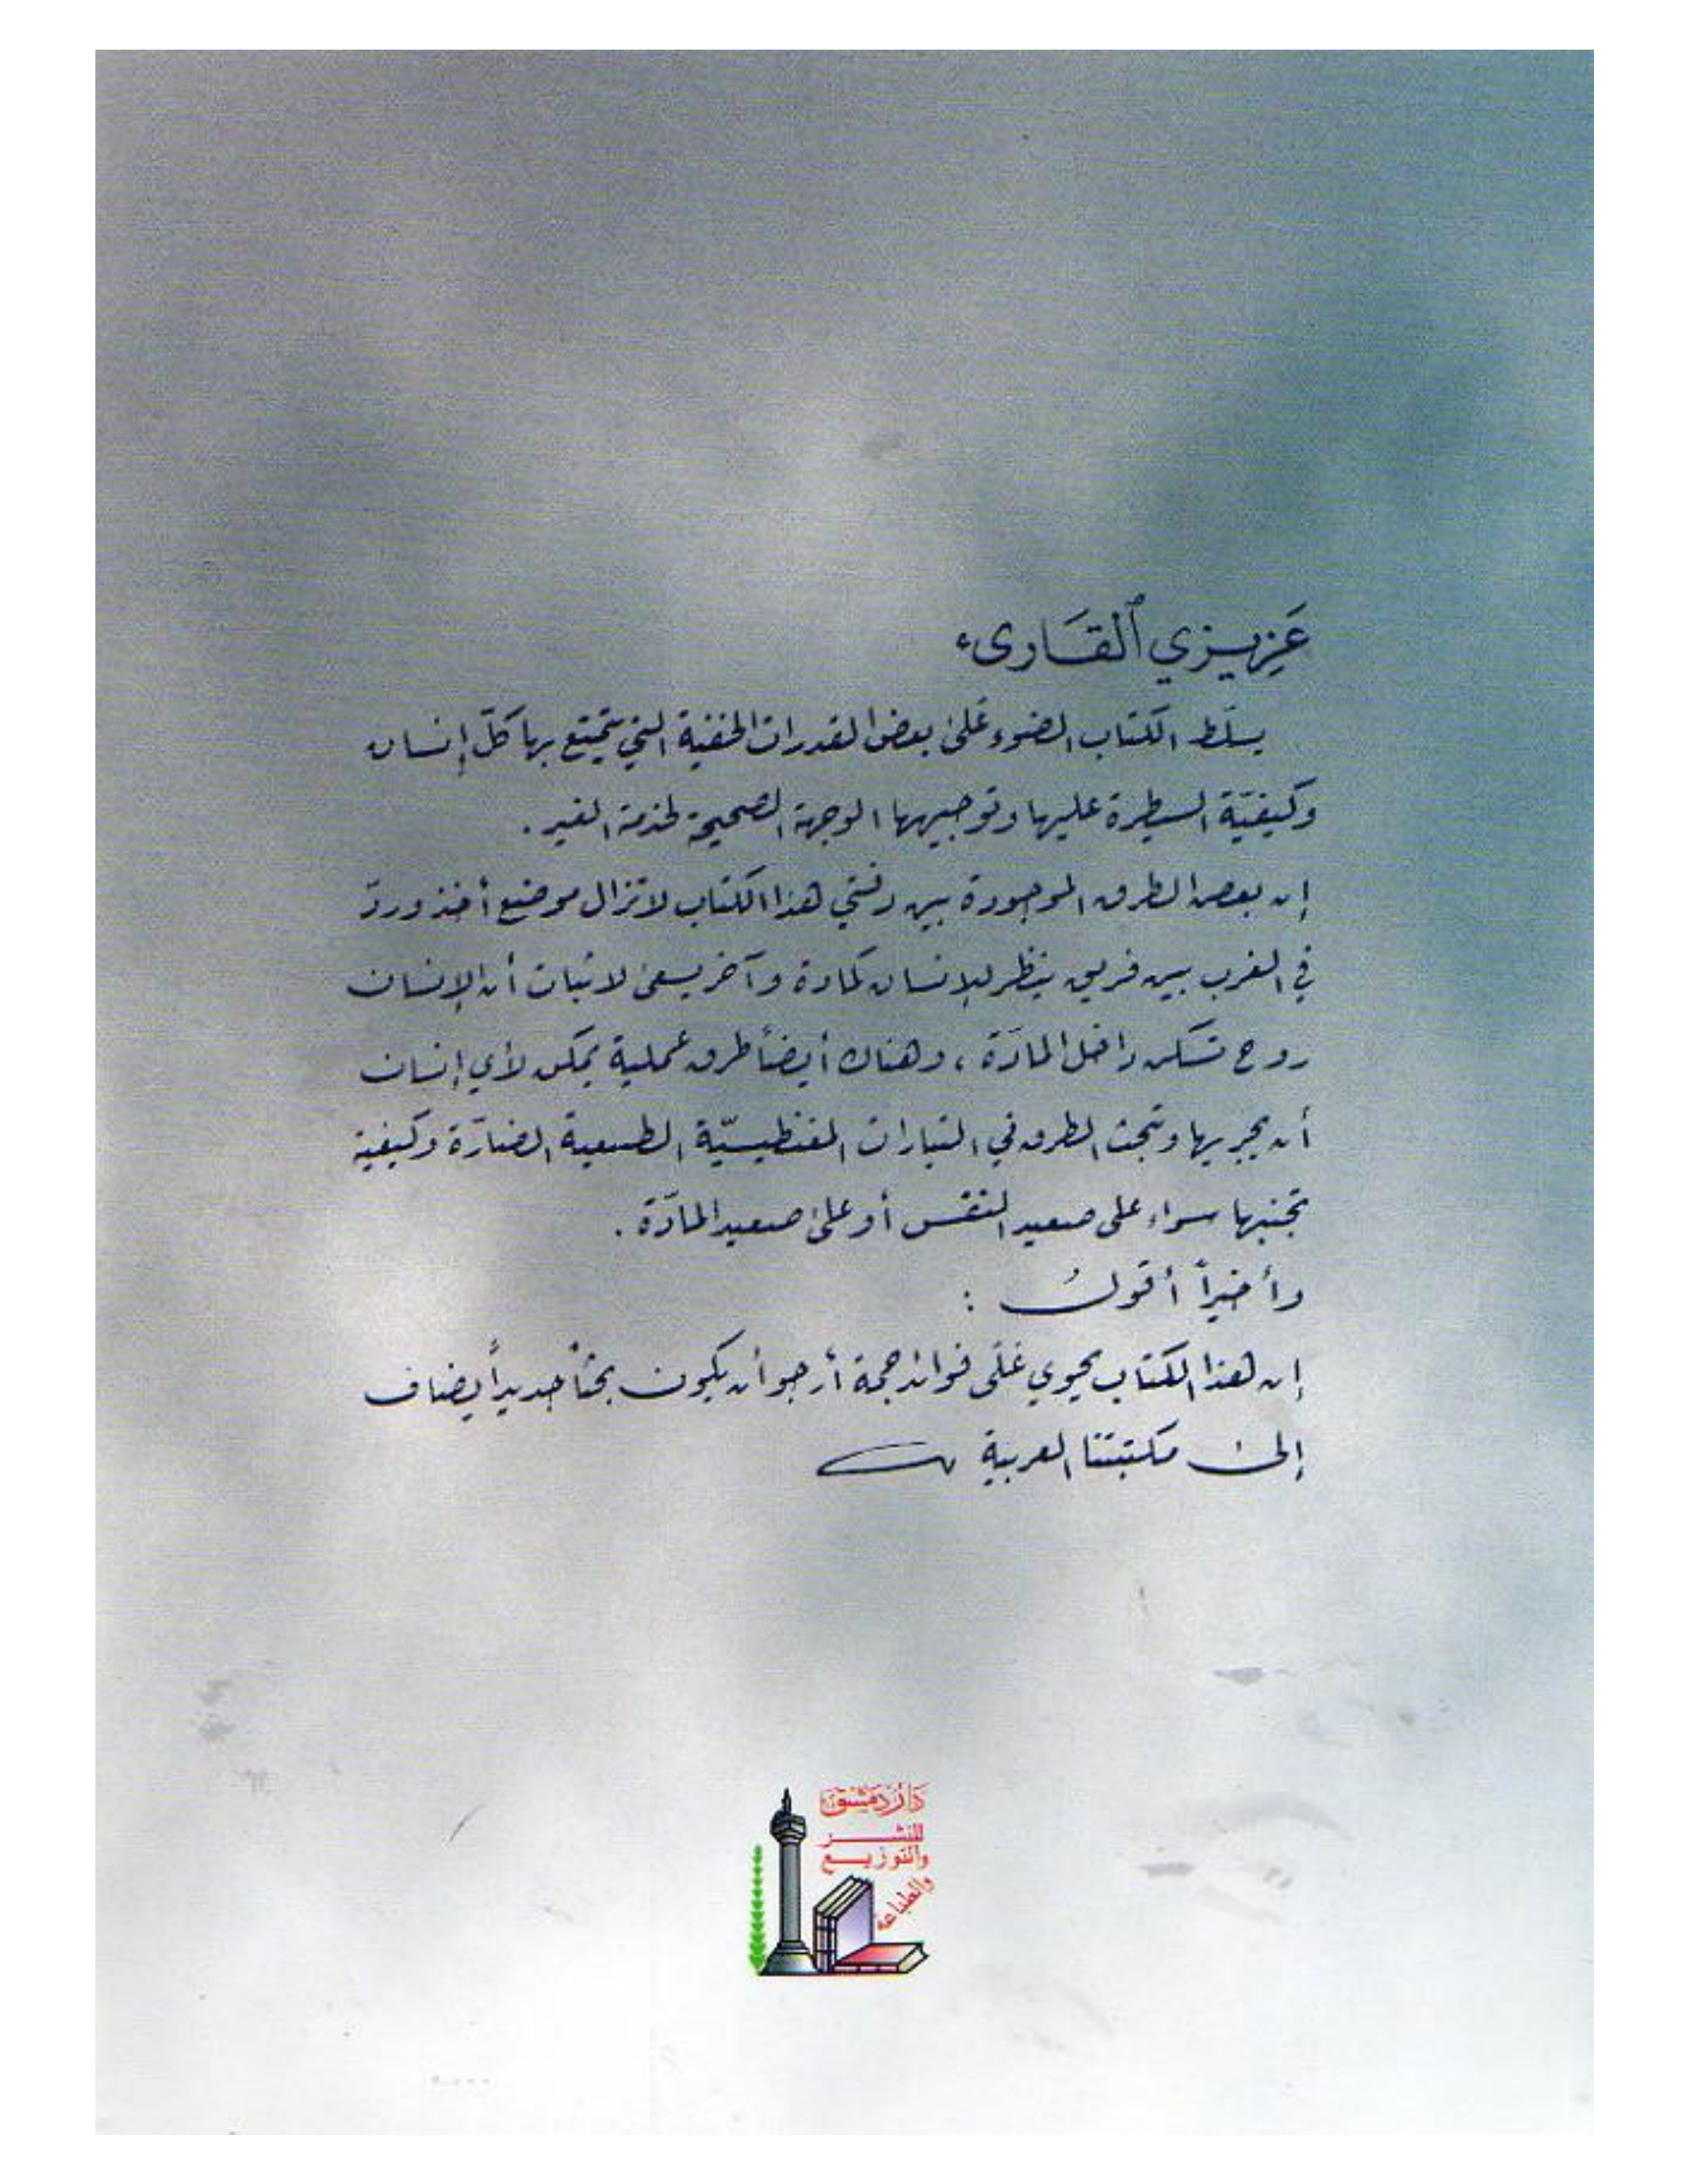 عَزِيزي ٱلقَارىء
يسلّط الكتاب الضوء عَلىٰ بعض القدرات الخفيّة التي يتمتع بها كلّ إنسان
وكيفيّة السيطرة عليها وتوجيهها الوجهة الصحيحة لخدمة الغير .
إن بعض الطرق الموجودة بين دفتي هذا الكتاب لا تزال موضع أخذ وردّ
في الغرب بين فريق ينظر للإنسان كمادة وآخر يسعى لاثبات أن الإنسان
روح تسكن داخل المادّة ، وهناك أيضاً طرق عملية يمكن لأي إنسان
أن يجريها وتبحث الطرق في التيارات المغنطيسيّة الطبيعية الضارّة وكيفية
تجنبها سواء على صعيد النفس أو على صعيد المادّة .
وأخيراً أقولُ :
إن هذا الكتاب يحوي عَلى فوائد جمة أرجو أن يكون بحثاً جديداً يضاف
إلىٰ مكتبتنا العربية
دار دمشق
للنشـــر
والتوزيـــع
والطباعة